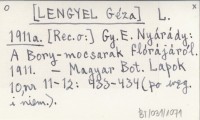 [LENGYEL Géza] L.
1911a. [Rec. o:] Gy. E. Nyárády:
A Bory-mocsarak flórájáról.
1911. – Magyar Bot. Lapok
10, nr 11-12: 433-434 (po węg.
i niem.).
B1/031/1079